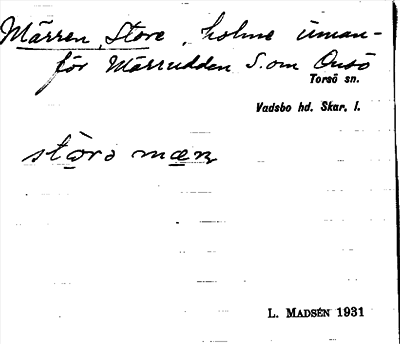 Märren, Store, holme uman-
för Märrudden S. om Onsö
Torsö sn.
Vadsbo hd. Skar. l.
L. MADSÉN 1931